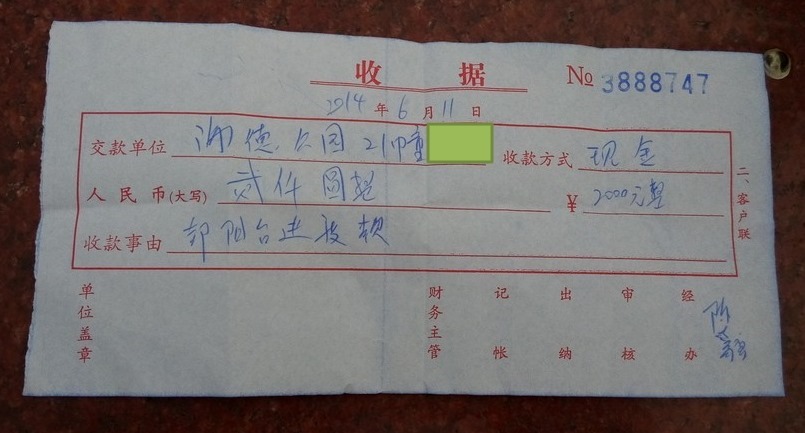 收 据 № 3888747
2014 年 6 月 11 日
交款单位 湖德公园 21幢 收款方式 现金
人民币(大写) 贰仟圆整 ¥ 2000元整
收款事由 封阳台建设款
二、客户联
单位盖章 财务主管 记帐 出纳 审核 经办 陈